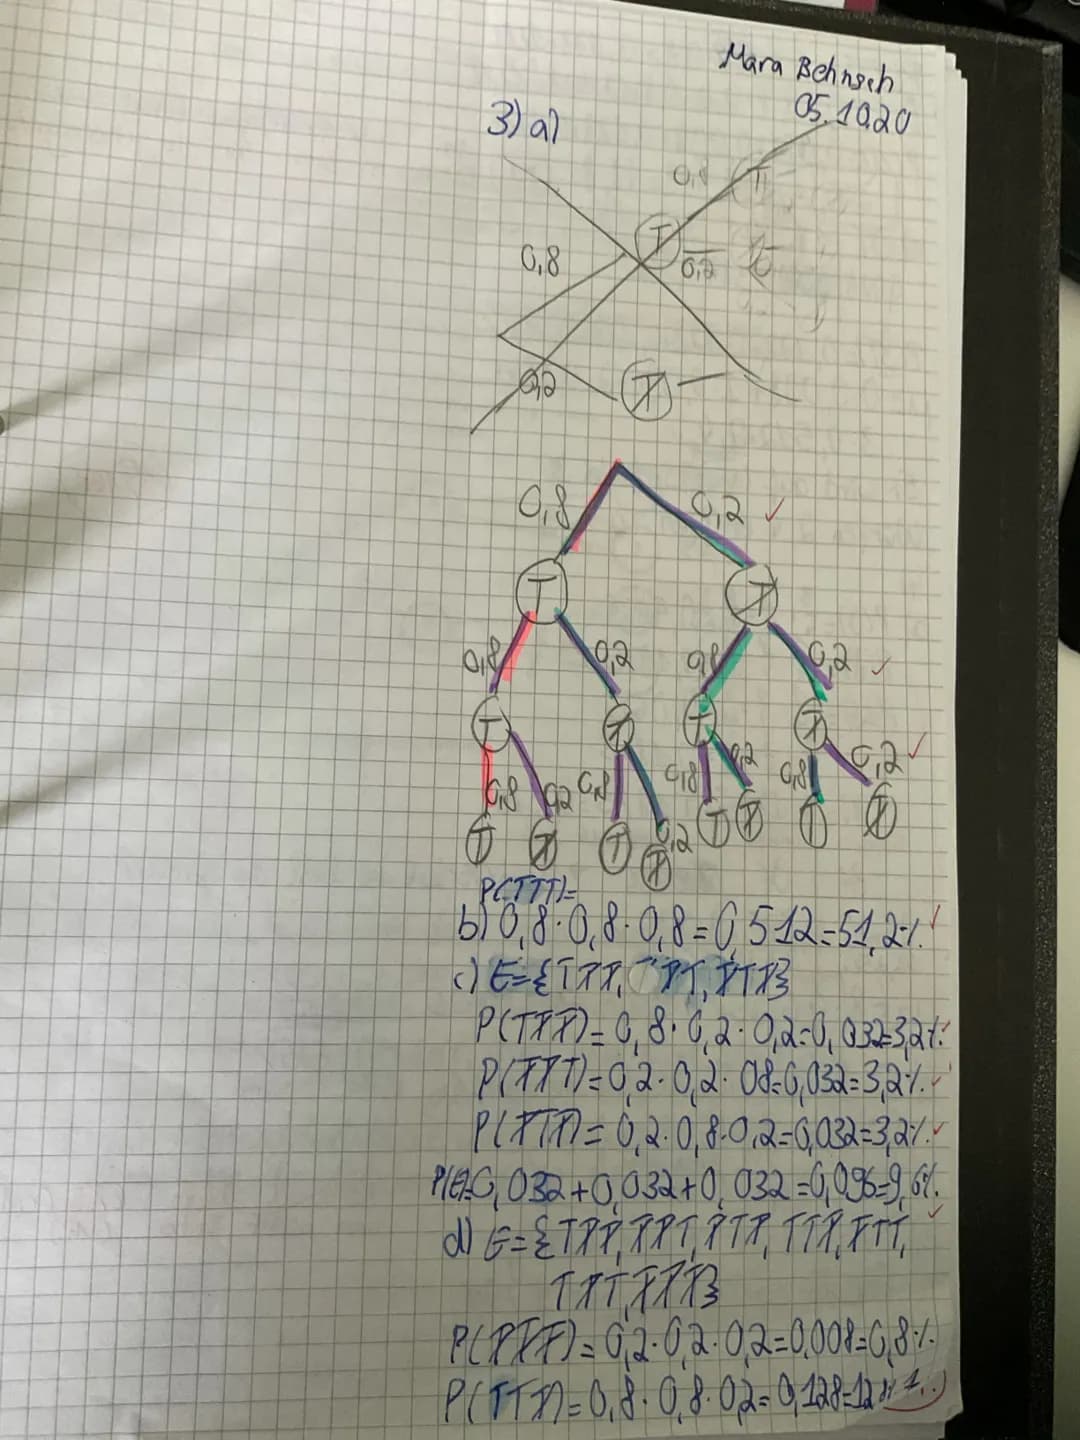 Mara Behnsch
05.10.20
3) a)
0,8 T
0,8 T
0,2
0,2 T̸
0,8 0,2
T T̸
0,8 0,2 0,8 0,2
T T̸ T T̸
0,8 0,2 0,8 0,2 0,8 0,2 0,8 0,2
T T̸ T T̸ T T̸ T T̸
P(TTT)=
b) 0,8·0,8·0,8=0,512=51,2%
c) E={TT̸T̸, T̸T̸T, T̸TT̸}
P(TT̸T̸)=0,8·0,2·0,2=0,032=3,2%
P(T̸T̸T)=0,2·0,2·08=0,032=3,2%
P(T̸TT̸)=0,2·0,8·0,2=0,032=3,2%
P(E)=0,032+0,032+0,032=0,096=9,6%
d) E={TT̸T̸, T̸T̸T, T̸TT̸, TTT̸, T̸TT,
TT̸T, T̸T̸T̸}
P(T̸T̸T̸)=0,2·0,2·0,2=0,008=0,8%
P(TTT̸)=0,8·0,8·0,2=0,128=12